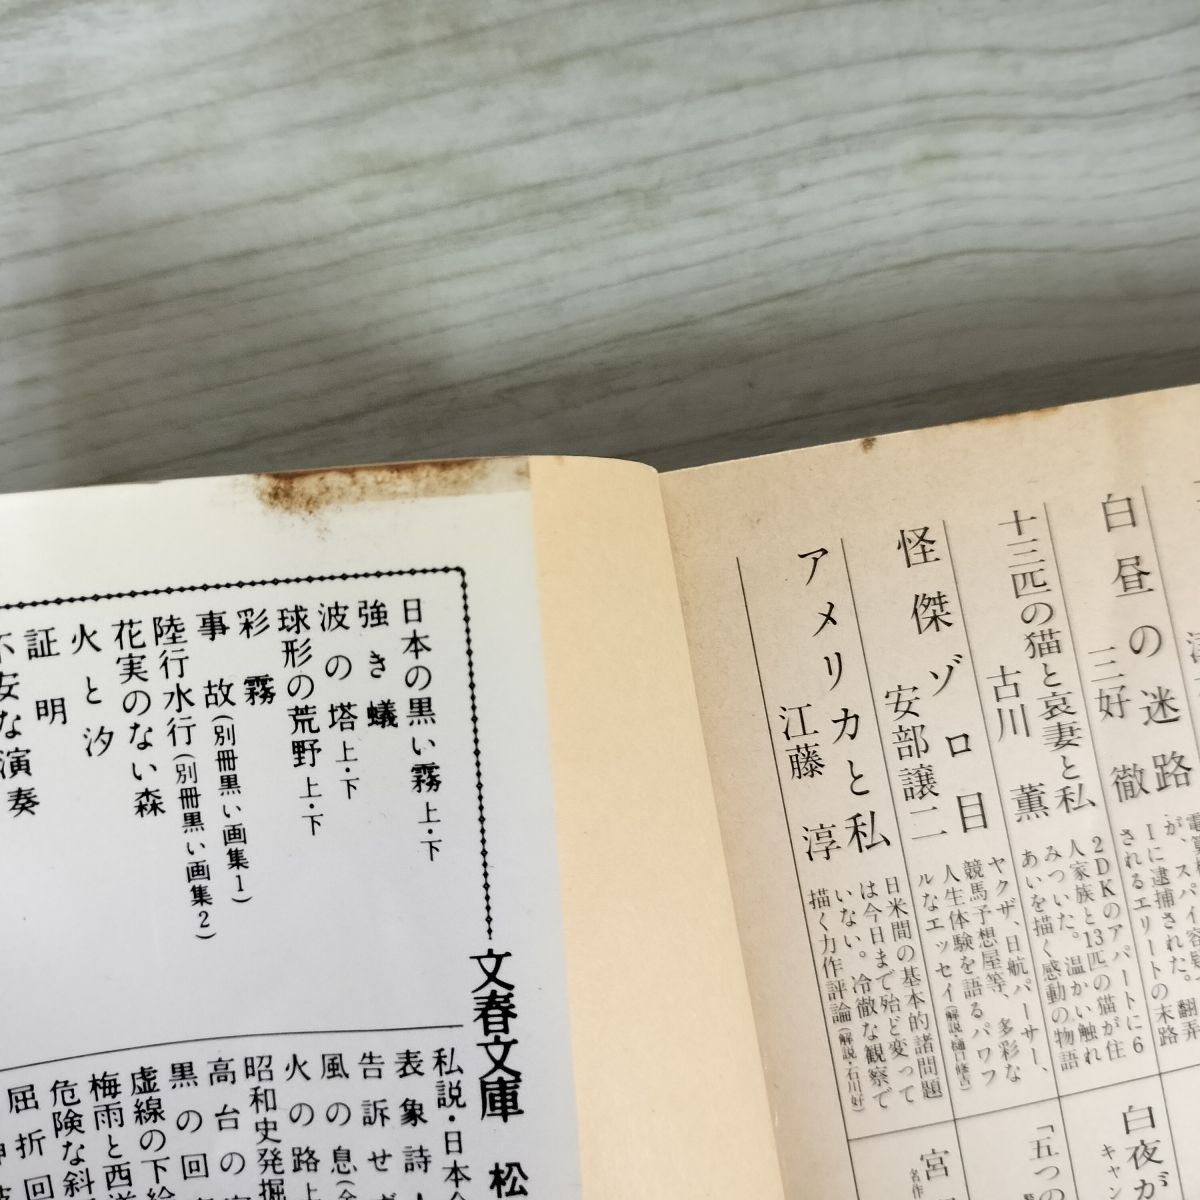 白昼の迷路
三好 徹
電算機
が、スパイ容疑
Iに逮捕された。翻弄
されるエリートの末路
十三匹の猫と哀妻と私
古川 薫
2DKのアパートに6
人家族と13匹の猫が住
みついた。温かい触れ
あいを描く感動の物語
怪傑ゾロ目
安部譲二
ヤクザ、日航パーサー、
競馬予想屋等、多彩な
人生体験を語るパワフ
ルなエッセイ(解説・樋口修吉)
アメリカと私
江藤 淳
日米間の基本的諸問題
は今日まで殆ど変って
いない。冷徹な観察で
描く力作評論(解説・石川好)
白夜が
キャン
「五つの
宮
名作
文春文庫 松
日本の黒い霧 上・下
強き蟻
波の塔 上・下
球形の荒野 上・下
彩霧
事故(別冊黒い画集1)
陸行水行(別冊黒い画集2)
花実のない森
火と汐
証明
不安な演奏
私説・日本
表象詩人
告訴せず
風の息(
火の路 上
昭和史発掘
高台の
黒の回
虚線の下絵
梅雨と西洋
危険な斜
屈折回